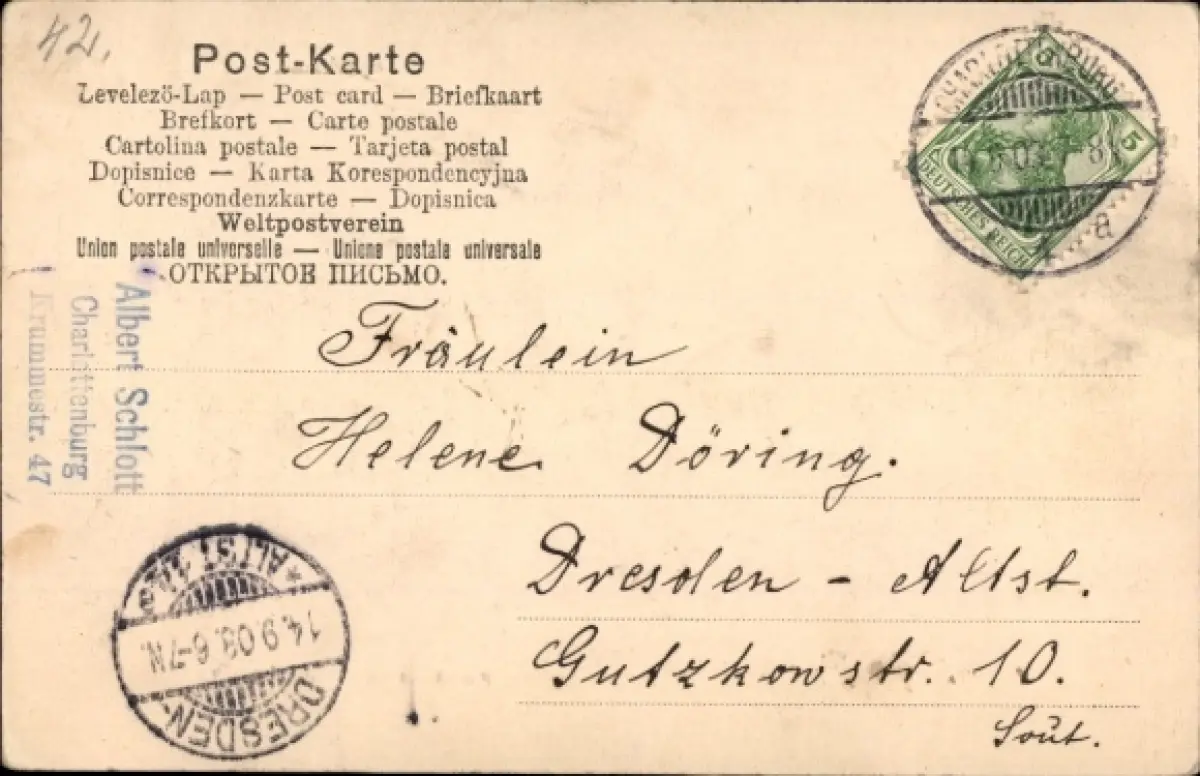 42.
Post-Karte
Levelező-Lap — Post card — Briefkaart
Brefkort — Carte postale
Cartolina postale — Tarjeta postal
Dopisnice — Karta Korespondencyjna
Correspondenzkarte — Dopisnica
Weltpostverein
Union postale universelle — Unione postale universale
ОТКРЫТОЕ ПИСЬМО.
5 5
DEUTSCHES REICH
a
Albert Schlott
Charlottenburg
Krummestr. 47
Fräulein
Helene Döring.
Dresden - Altst.
Gutzkowstr. 10.
Sout.
DRESDEN-
14.9.03. 6-7N.
* ALTST.